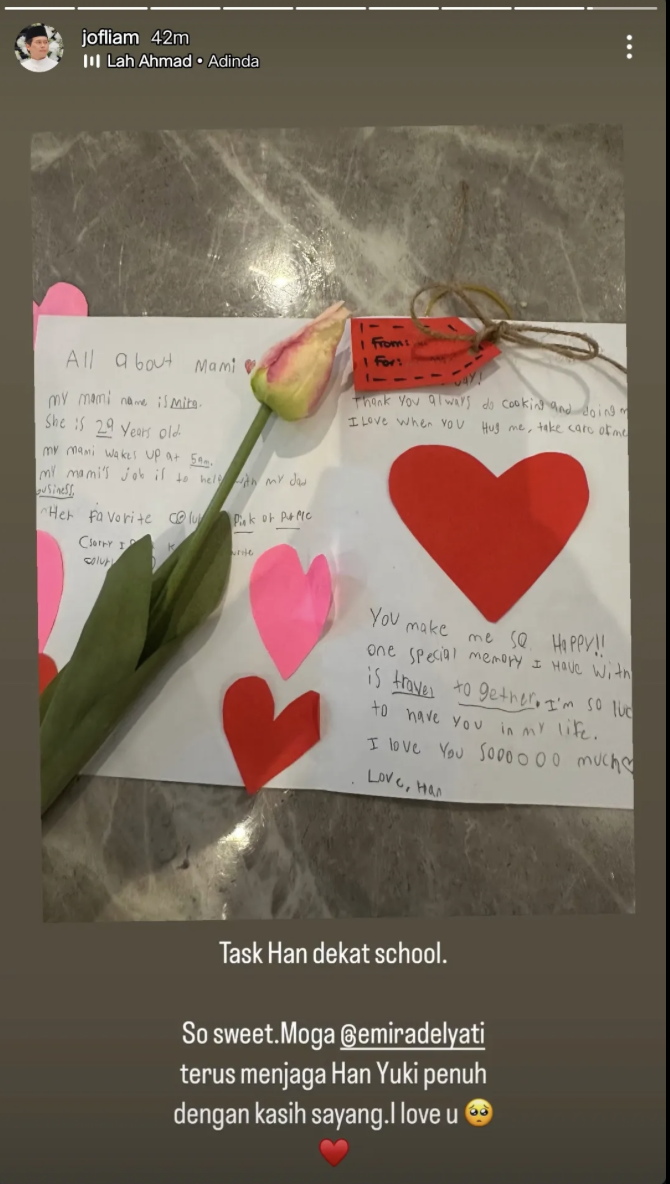 jofliam 42m
Lah Ahmad • Adinda
All about Mami
my mami name is Mira.
she is 29 Years old
my mami wakes up at 5am.
my mami's job is to help with my dad
business.
Her favorite colur Pink or Purple
(sorry I
From:
For:
Thank you always do cooking and doing
I Love when you Hug me, take care of me
You make me so Happy!!
one special memory I Have with
is travel to gether. I'm so luc
to have you in my life.
I love you sooooo much
Love, Han
Task Han dekat school.
So sweet.Moga @emiradelyati
terus menjaga Han Yuki penuh
dengan kasih sayang.I love u 🥺
♥️